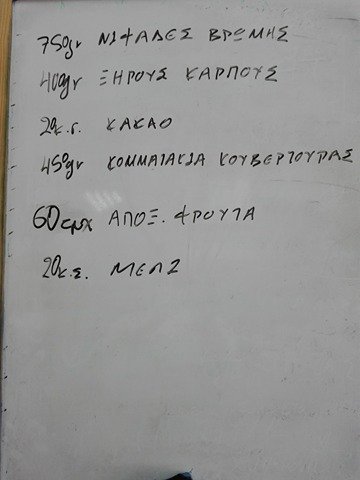 750gr ΝΙΦΑΔΕΣ ΒΡΩΜΗΣ
400gr ΞΗΡΟΥΣ ΚΑΡΠΟΥΣ
20κ.σ. ΚΑΚΑΟ
450gr ΚΟΜΜΑΤΑΚΙΑ ΚΟΥΒΕΡΤΟΥΡΑΣ
60 ΑΠΟΞ. ΦΡΟΥΤΑ
20κ.σ. ΜΕΛΙ